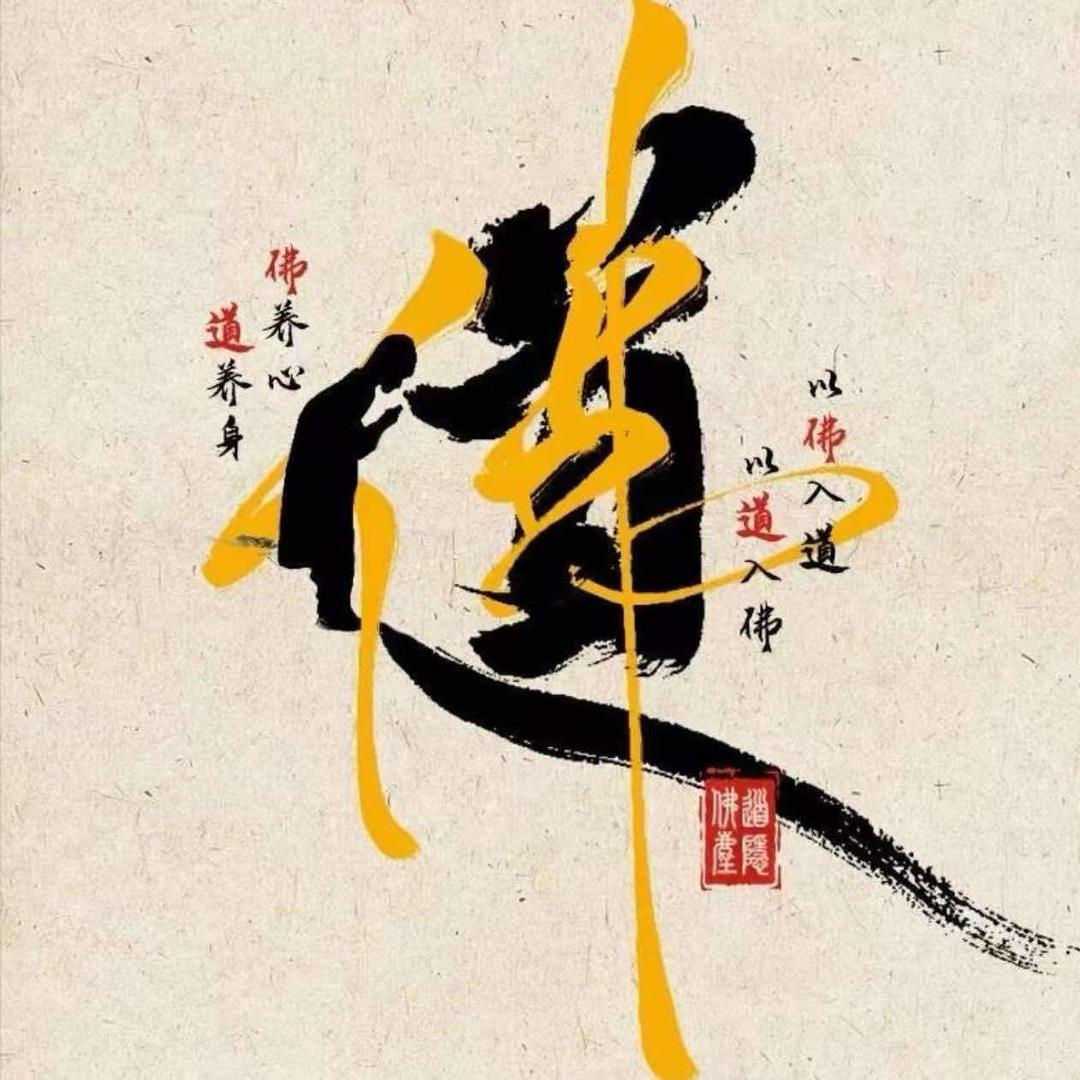 佛
道
以佛入道
以道入佛
佛养心
道养身
道隱
佛